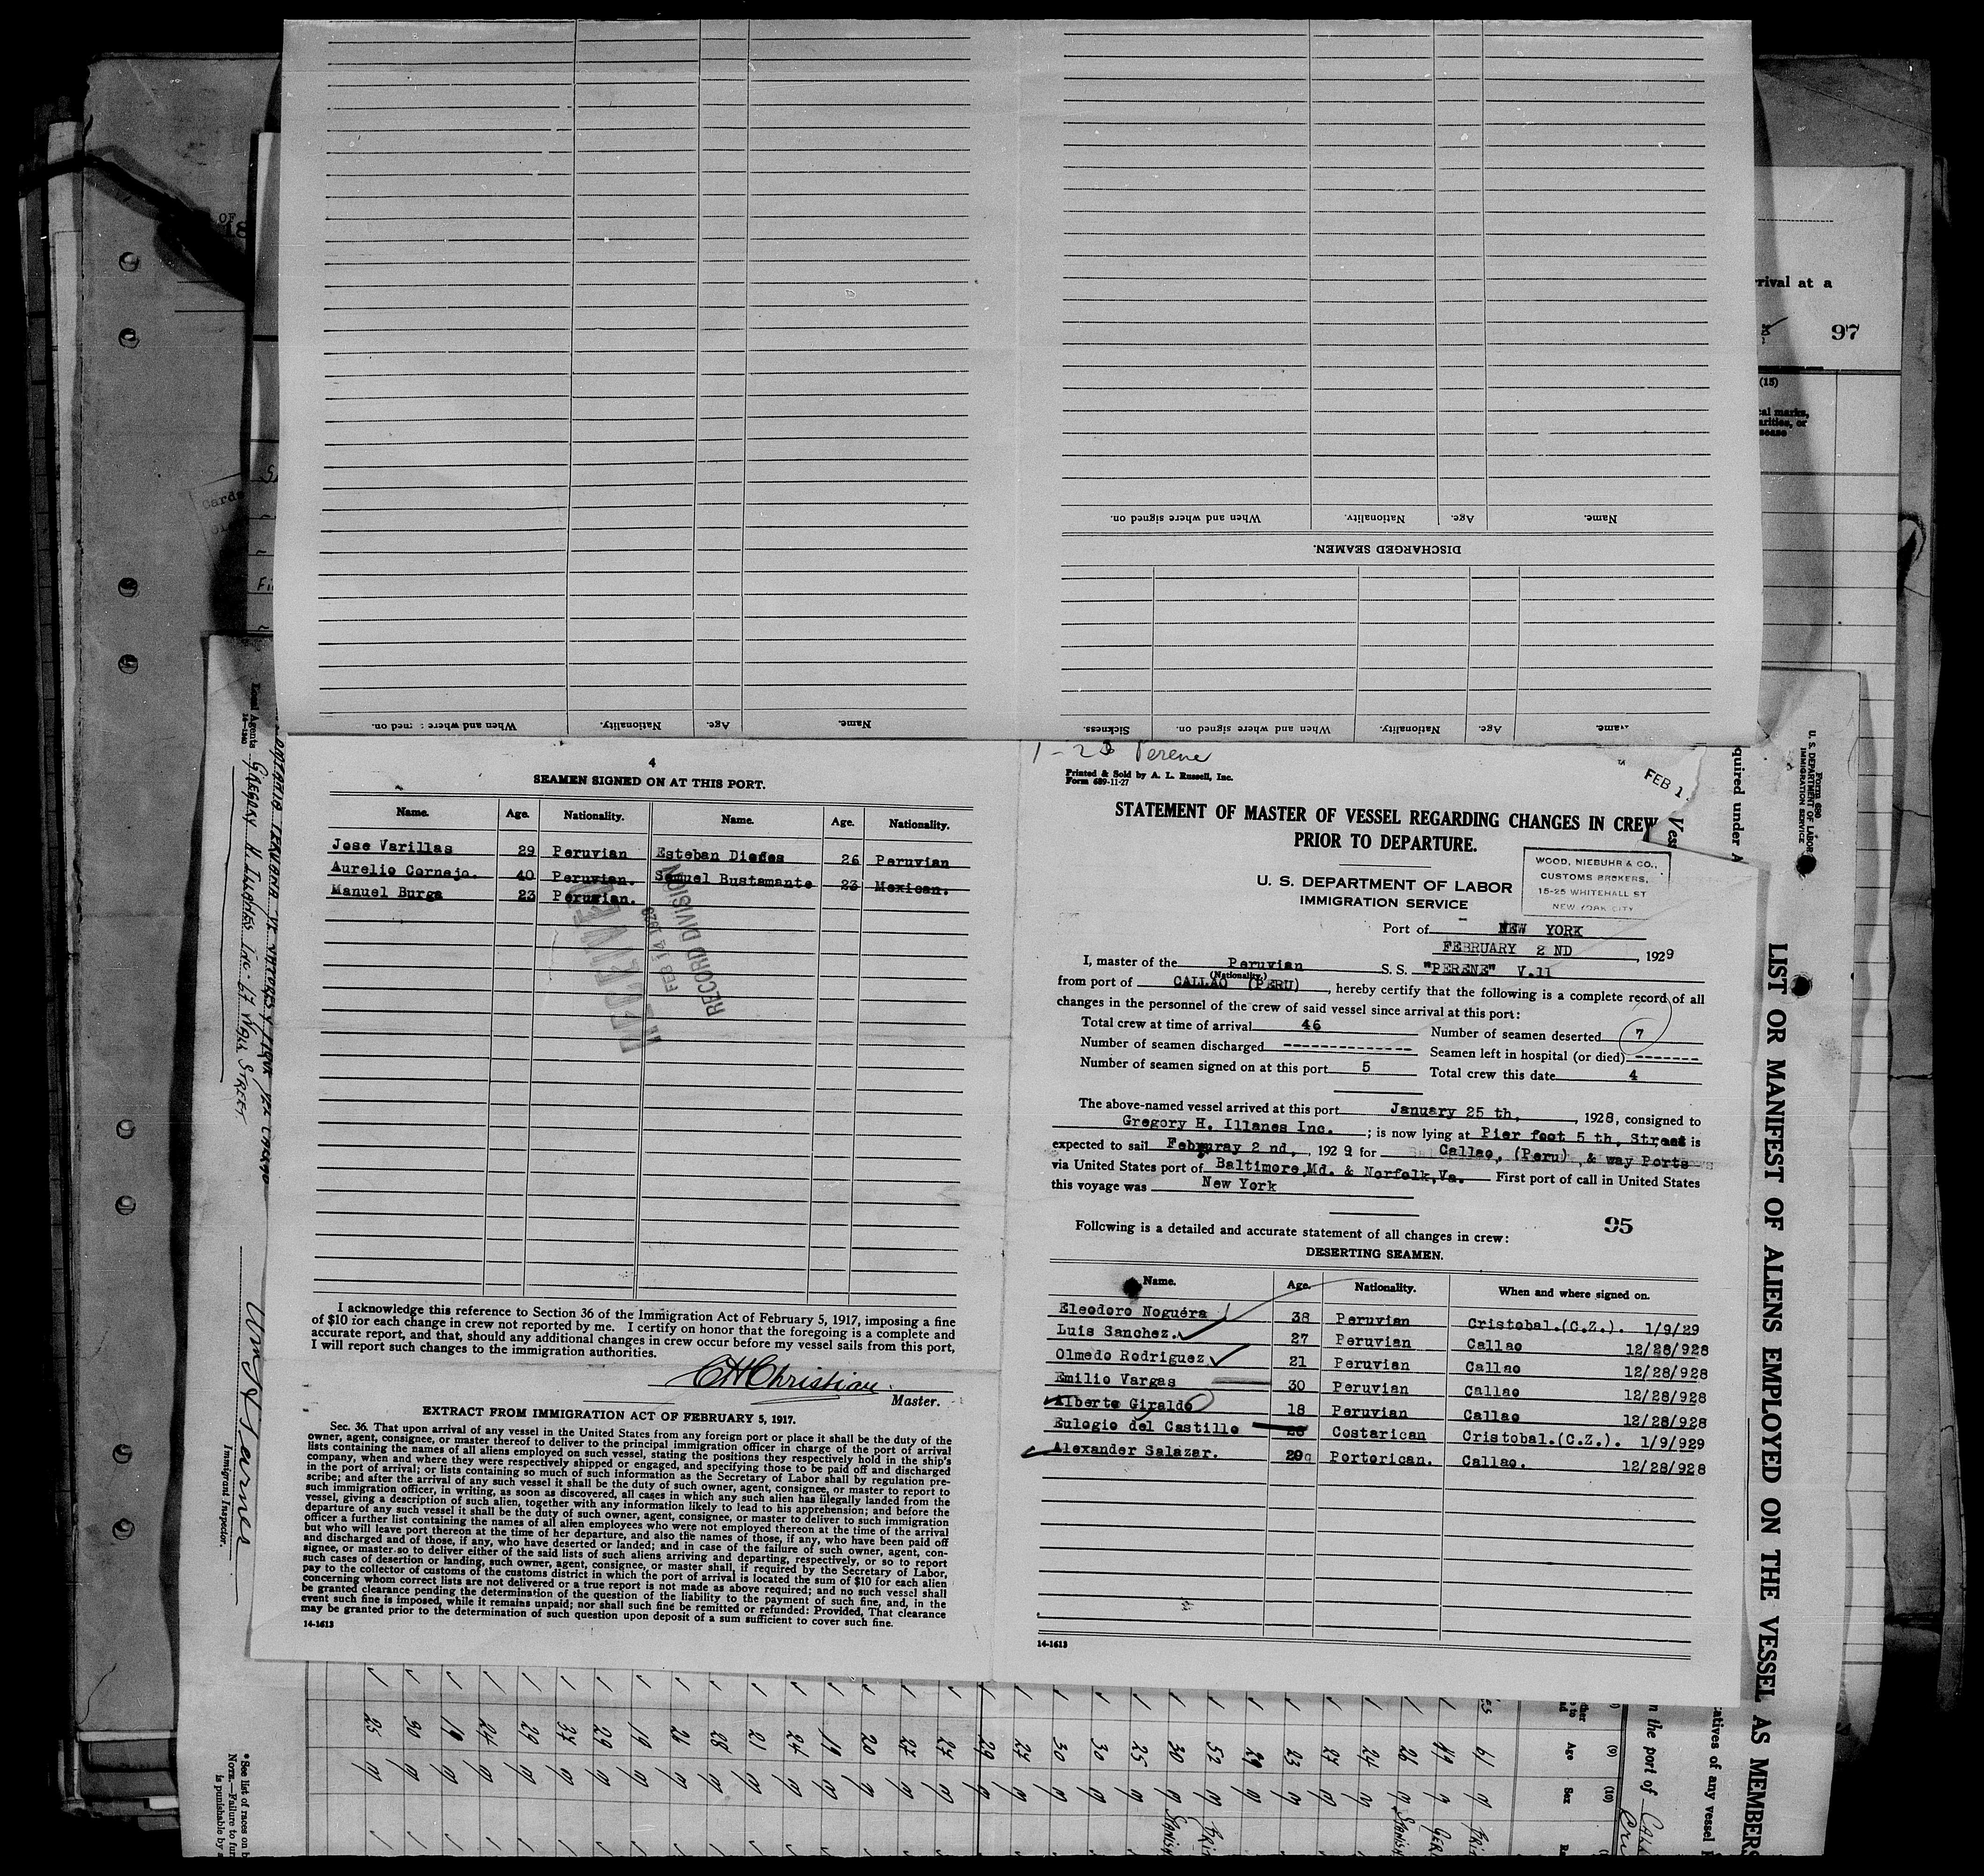 When and where signed on.
Nationality.
Age.
Name.
DISCHARGED SEAMEN.
Sickness.
When and where signed on.
Nationality.
Age.
Name.
Nationality.
Age.
Name.
4
SEAMEN SIGNED ON AT THIS PORT.
Name. Age. Nationality. Name. Age. Nationality.
Jose Varillas 29 Peruvian Esteban Diefes 26 Peruvian
Aurelio Cornejo. 40 Peruvian. Samuel Bustamante 23 Mexican.
Manuel Burga 23 Peruvian.
RECEIVED
FEB 14 1929
RECORD DIVISION
I acknowledge this reference to Section 36 of the Immigration Act of February 5, 1917, imposing a fine
of $10 for each change in crew not reported by me. I certify on honor that the foregoing is a complete and
accurate report, and that, should any additional changes in crew occur before my vessel sails from this port,
I will report such changes to the immigration authorities.
CHChristian
Master.
EXTRACT FROM IMMIGRATION ACT OF FEBRUARY 5, 1917.
Sec. 36. That upon arrival of any vessel in the United States from any foreign port or place it shall be the duty of the
owner, agent, consignee, or master thereof to deliver to the principal immigration officer in charge of the port of arrival
lists containing the names of all aliens employed on such vessel, stating the positions they respectively hold in the ship's
company, when and where they were respectively shipped or engaged, and specifying those to be paid off and discharged
in the port of arrival; or lists containing so much of such information as the Secretary of Labor shall by regulation pre-
scribe; and after the arrival of any such vessel it shall be the duty of such owner, agent, consignee, or master to report to
such immigration officer, in writing, as soon as discovered, all cases in which any such alien has illegally landed from the
vessel, giving a description of such alien, together with any information likely to lead to his apprehension; and before the
departure of any such vessel it shall be the duty of such owner, agent, consignee, or master to deliver to such immigration
officer a further list containing the names of all alien employees who were not employed thereon at the time of the arrival
but who will leave port thereon at the time of her departure, and also the names of those, if any, who have been paid off
and discharged and of those, if any, who have deserted or landed; and in case of the failure of such owner, agent, con-
signee, or master so to deliver either of the said lists of such aliens arriving and departing, respectively, or so to report
such cases of desertion or landing, such owner, agent, consignee, or master shall, if required by the Secretary of Labor,
pay to the collector of customs of the customs district in which the port of arrival is located the sum of $10 for each alien
concerning whom correct lists are not delivered or a true report is not made as above required; and no such vessel shall
be granted clearance pending the determination of the question of the liability to the payment of such fine, and, in the
event such fine is imposed, while it remains unpaid; nor shall such fine be remitted or refunded: Provided, That clearance
may be granted prior to the determination of such question upon deposit of a sum sufficient to cover such fine.
14-1613
Perene
Printed & Sold by A. L. Russell, Inc.
Form 689-11-27
FEB 1
STATEMENT OF MASTER OF VESSEL REGARDING CHANGES IN CREW
PRIOR TO DEPARTURE.
U. S. DEPARTMENT OF LABOR
IMMIGRATION SERVICE
WOOD, NIEBUHR & CO.,
CUSTOMS BROKERS,
15-25 WHITEHALL ST
NEW YORK CITY
Port of NEW YORK
FEBRUARY 2 ND, 1929
I, master of the Peruvian S. S. "PERENE" V.11
(Nationality.)
from port of CALLAO (PERU), hereby certify that the following is a complete record of all
changes in the personnel of the crew of said vessel since arrival at this port:
Total crew at time of arrival 46 Number of seamen deserted 7
Number of seamen discharged ------------- Seamen left in hospital (or died) -------
Number of seamen signed on at this port 5 Total crew this date 4
The above-named vessel arrived at this port January 25 th, , 1928, consigned to
Gregory H. Illanes Inc. ; is now lying at Pier foot 5 th, Street is
expected to sail Februray 2 nd, , 1929 for Callao, (Peru) , & way Ports
via United States port of Baltimore,Md. & Norfolk,Va. First port of call in United States
this voyage was New York
95
Following is a detailed and accurate statement of all changes in crew:
DESERTING SEAMEN.
Name. Age. Nationality. When and where signed on.
Eleodoro Noguéra 38 Peruvian Cristobal.(C.Z.). 1/9/29
Luis Sanchez. 27 Peruvian Callao 12/28/928
Olmedo Rodriguez 21 Peruvian Callao 12/28/928
Emilio Vargas 30 Peruvian Callao 12/28/928
Alberto Giraldo 18 Peruvian Callao 12/28/928
Eulogio del Castillo 26 Costarican Cristobal.(C.Z.). 1/9/929
Alexander Salazar. 29 Portorican. Callao. 12/28/928
14-1613
rival at a
97
(15)
cal marks,
arities, or
sease
Form 680
U. S. DEPARTMENT OF LABOR
IMMIGRATION SERVICE
quired under A
Vess
LIST OR MANIFEST OF ALIENS EMPLOYED ON THE VESSEL AS MEMBERS
atives of any vessel
n the port of
Local Agents Gregory H. Illanes Inc - 67 Wall Street
14-1240
Immigrant Inspector.
*See list of races on b
NOTE.—Failure to fur
is punishable by a
(9)
Age
(10)
Sex